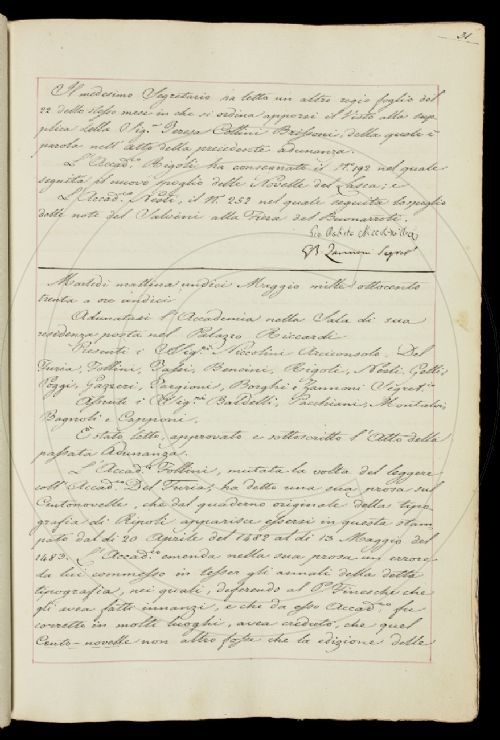 31
Il medesimo Segretario ha letto un altro regio foglio del
22 dello stesso mese in che si ordina apporsi il Visto alla sup-
plica della Sig.ra Teresa Cottini, della quale è
parola nell'Atto della precedente adunanza.
L'Accad.co Rigoli ha consegnato il N.o 192 nel quale
seguita lo nuovo spoglio delle Novelle del Lasca; e
L'Accad.co Nesti, il N.o 252 nel quale seguita lo spoglio
delle note del Salvini alla Fiera del Buonarroti.
G. B. Zannoni Segret.o
Martedì mattina undici Maggio mille ottocento
trenta a ore undici
Adunatasi l'Accademia nella Sala di sua
residenza posta nel Palazzo Riccardi
Presenti i SS.ri Niccolini Arciconsolo, Del
Furia, Follini, Bencini, Rigoli, Nesti, Gelli,
Poggi, Gazzeri, Targioni, Borghi e Zannoni Segret.o
Assenti i SS.ri Baldelli, Pacchiani, Montalvi,
Bagnoli e Capponi.
È stato letto, approvato e sottoscritto l'Atto della
passata Adunanza.
L'Accad.co Follini, mutata la volta del leggere
coll'Accad.co Del Furia, ha detto una sua prosa sul
Centonovelle, che dal quaderno originale della tipo-
grafia di Ripoli apparisce essersi in questa stam-
pato dal dì 20 Aprile del 1482 al dì 13 Maggio del
1483. L'Accad.co emenda nella sua prosa un errore
da lui commesso in tesser gli annali della detta
tipografia, nei quali, deferendo al P. Fineschi che
gli avea fatti innanzi, e che da esso Accad.co fu
corretto in molti luoghi, avea creduto, che quel
Cento-novelle non altro fosse che la edizione delle